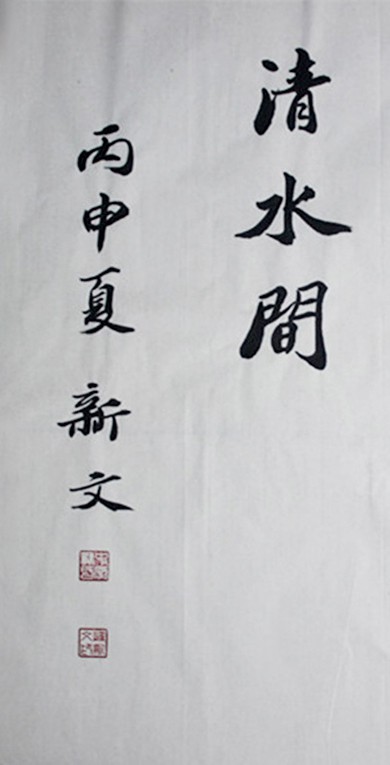 清水間
丙申夏 新文